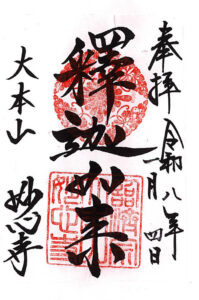 奉拝
令和八年
一月四日
釋迦如来
大本山
妙心寺